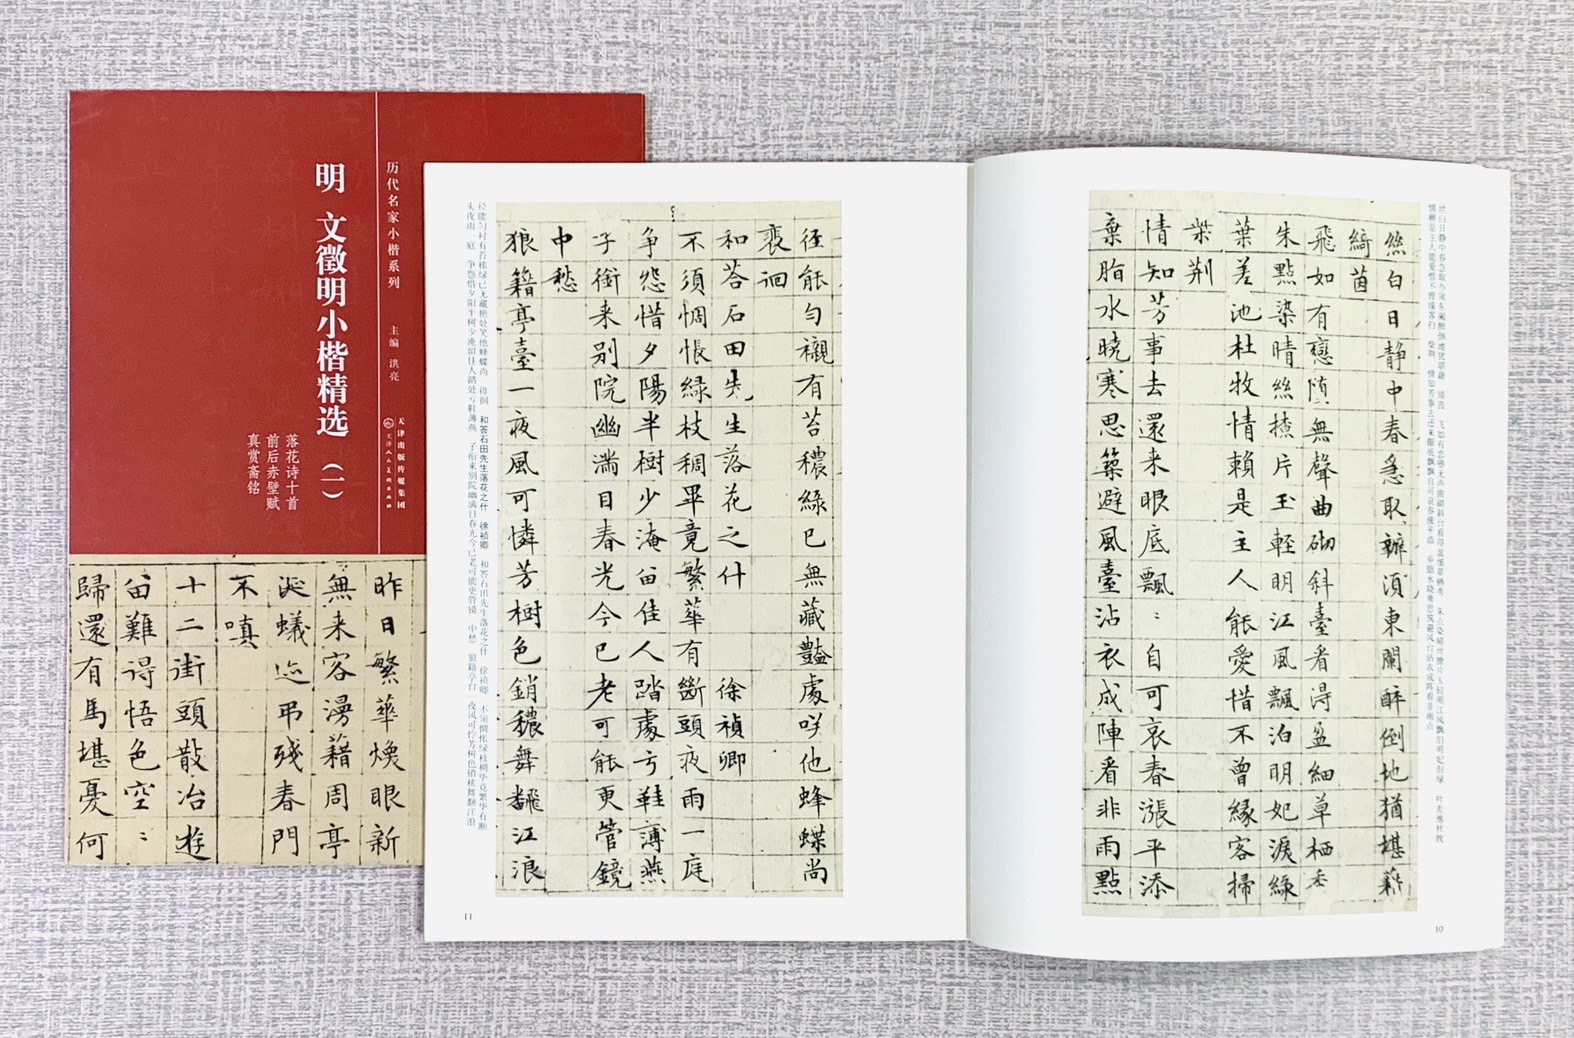 历代名家小楷系列 主编 洪亮
天津出版传媒集团
明 文徵明小楷精选（一）
落花诗十首
前后赤壁赋
真赏斋铭
昨日繁華煥眼新
無来客漫藉周亭
涎蟻迹弔残春門
不嗔
十二街頭散冶遊
畱難得悟色空〻
歸還有馬堪憂何
絲白日静中春急取辦須東闌醉倒地猶堪藉
綺茵
飛如有戀随無聲曲砌斜臺看得盈細草栖
朱點染晴絲搽片玉輕明江風飄泊明妃淚綠
葉差池杜牧情賴是主人能愛惜不曾緣客掃
柴荆
情知芳事去還来眼底飄〻自可哀春漲平添
棄脂水晓寒思築避風臺沾衣成陣看非雨點
10
徑能勻襯有苔穠綠已無藏豔處咲他蜂蝶尚
裵洄
和荅石田先生落花之什 徐禎卿
不須惆悵綠枝稠畢竟繁華有斷頭夜雨一庭
争怨惜夕陽半樹少淹畱佳人踏處弓鞋薄燕
子銜来别院幽满目春光今已老可能更管鏡
中愁
狼籍亭臺一夜風可憐芳樹色銷穠舞飜江浪
11